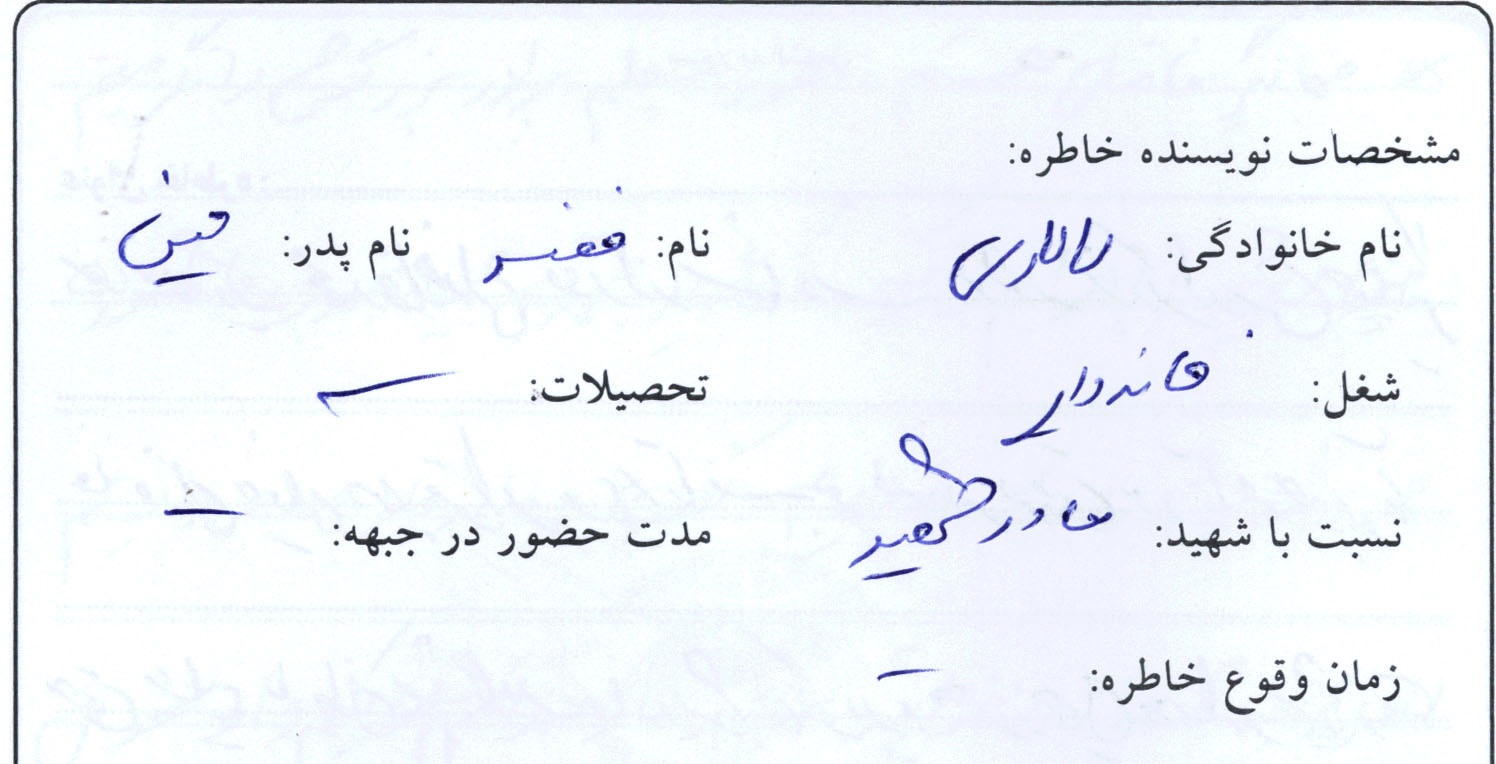 مشخصات نویسنده خاطره:
نام خانوادگی: نام: نام پدر:
شغل: خانه‌دار تحصیلات: —
نسبت با شهید: مادر شهید مدت حضور در جبهه: —
زمان وقوع خاطره: —